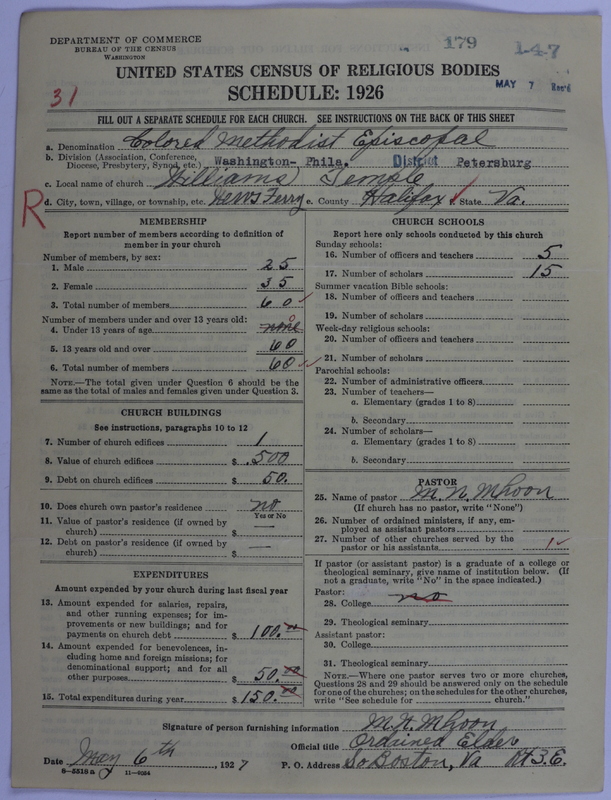 DEPARTMENT OF COMMERCE
BUREAU OF THE CENSUS
WASHINGTON
179
147
UNITED STATES CENSUS OF RELIGIOUS BODIES
MAY 7 Rec'd
SCHEDULE: 1926
31
FILL OUT A SEPARATE SCHEDULE FOR EACH CHURCH. SEE INSTRUCTIONS ON THE BACK OF THIS SHEET
a. Denomination Colored Methodist Episcopal
b. Division (Association, Conference, Diocese, Presbytery, Synod, etc.) Washington- Phila. District Petersburg
c. Local name of church Williams Temple
R
d. City, town, village, or township, etc. News Ferry e. County Halifax f. State Va.
MEMBERSHIP
Report number of members according to definition of
member in your church
Number of members, by sex:
1. Male 25
2. Female 35
3. Total number of members 60 ✓
Number of members under and over 13 years old:
4. Under 13 years of age none 0
5. 13 years old and over 60
6. Total number of members 60 ✓
NOTE.—The total given under Question 6 should be the
same as the total of males and females given under Question 3.
CHURCH BUILDINGS
See instructions, paragraphs 10 to 12
7. Number of church edifices 1
8. Value of church edifices $ 500
9. Debt on church edifices $ 50.
10. Does church own pastor's residence no
Yes or No
11. Value of pastor's residence (if owned by
church) $ —
12. Debt on pastor's residence (if owned by
church) $ —
EXPENDITURES
Amount expended by your church during last fiscal year
13. Amount expended for salaries, repairs,
and other running expenses; for im-
provements or new buildings; and for
payments on church debt $ 100.00
14. Amount expended for benevolences, in-
cluding home and foreign missions; for
denominational support; and for all
other purposes $ 50.00
15. Total expenditures during year $ 150.00
CHURCH SCHOOLS
Report here only schools conducted by this church
Sunday schools:
16. Number of officers and teachers 5
17. Number of scholars 15
Summer vacation Bible schools:
18. Number of officers and teachers
19. Number of scholars
Week-day religious schools:
20. Number of officers and teachers
21. Number of scholars
Parochial schools:
22. Number of administrative officers
23. Number of teachers—
a. Elementary (grades 1 to 8)
b. Secondary
24. Number of scholars—
a. Elementary (grades 1 to 8)
b. Secondary
PASTOR
25. Name of pastor M. N. Mhoon
(If church has no pastor, write "None")
26. Number of ordained ministers, if any, em-
ployed as assistant pastors
27. Number of other churches served by the
pastor or his assistants 1 ✓
If pastor (or assistant pastor) is a graduate of a college or
theological seminary, give name of institution below. (If
not a graduate, write "No" in the space indicated.)
Pastor:
28. College no
29. Theological seminary
Assistant pastor:
30. College
31. Theological seminary
NOTE.—Where one pastor serves two or more churches,
Questions 28 and 29 should be answered only on the schedule
for one of the churches; on the schedules for the other churches,
write "See schedule for church."
Signature of person furnishing information M. N. Mhoon
Official title Ordained Elder
Date May 6th, 1927 P. O. Address So Boston, Va Rt 3. E.
8—5518 a 11—9034